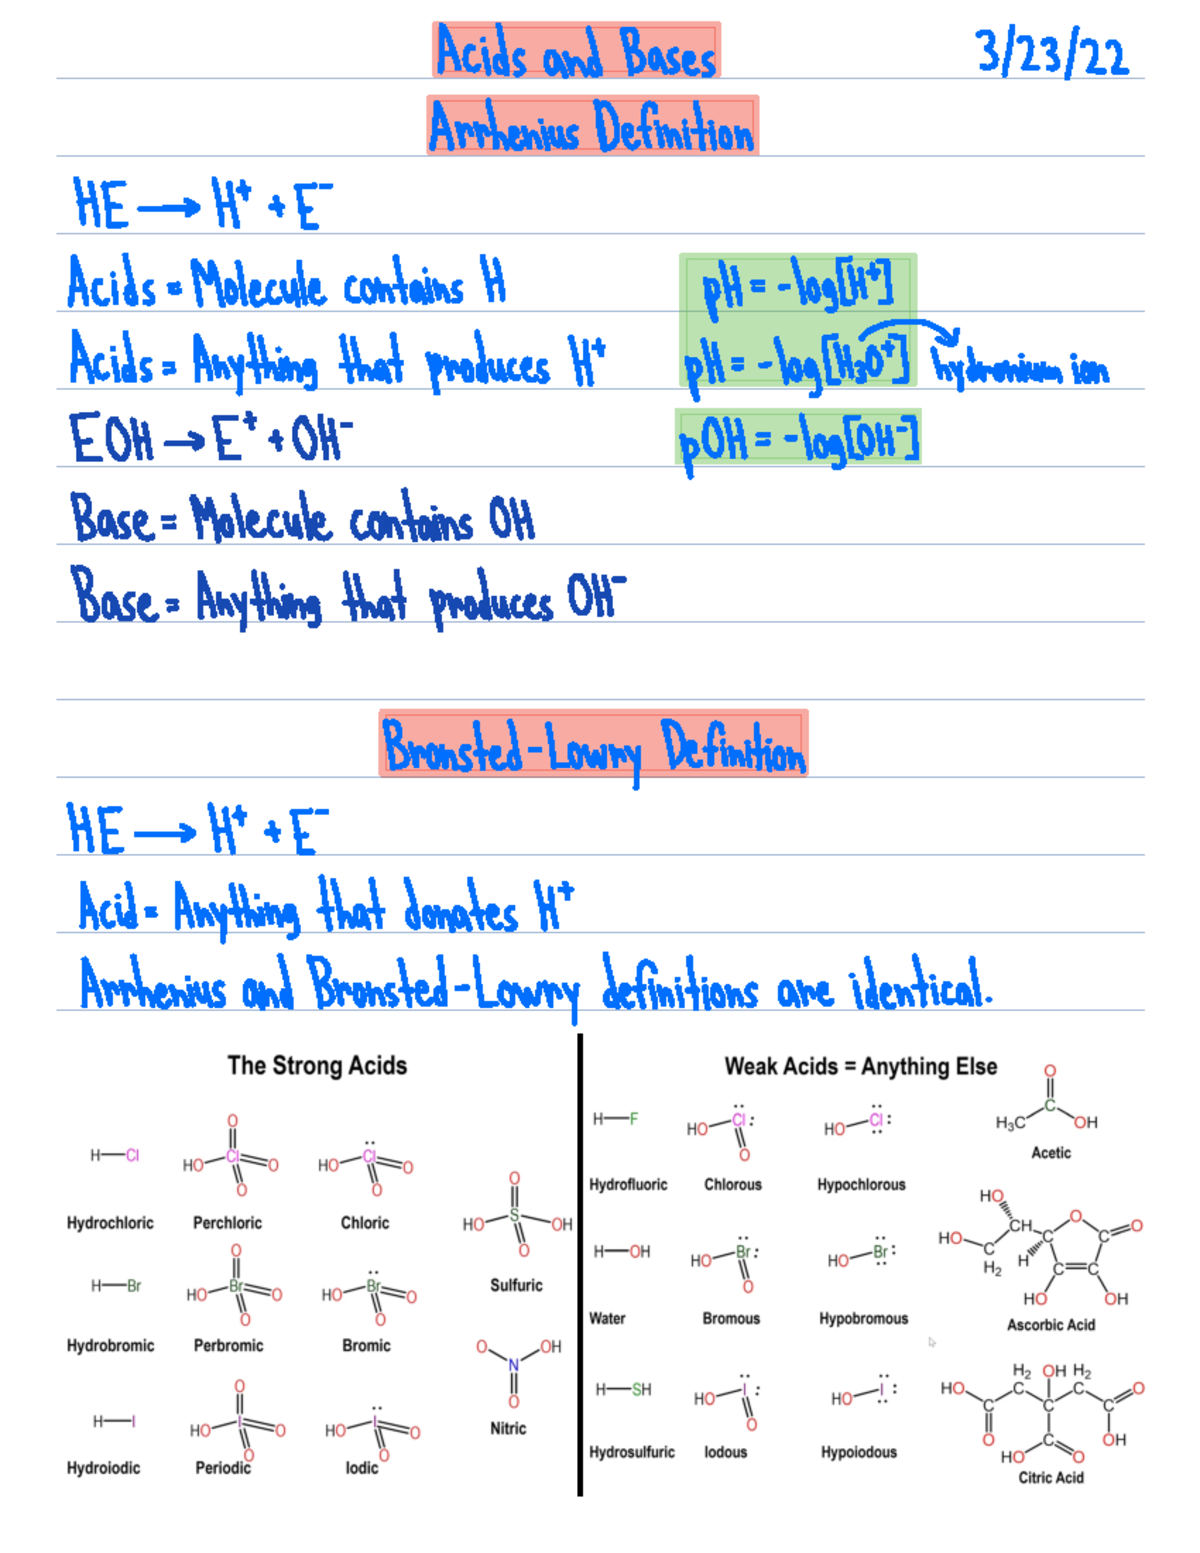 Acids and Bases 3/23/22
Arrhenius Definition
HE → H⁺ + E⁻
Acids = Molecule contains H
pH = -log[H⁺]
Acids = Anything that produces H⁺
pH = -log[H₃O⁺] hydronium ion
EOH → E⁺ + OH⁻
pOH = -log[OH⁻]
Base = Molecule contains OH
Base = Anything that produces OH⁻
Bronsted-Lowry Definition
HE → H⁺ + E⁻
Acid = Anything that donates H⁺
Arrhenius and Bronsted-Lowry definitions are identical.
The Strong Acids
H—Cl
HO Cl O O O
HO Cl O O
Hydrochloric Perchloric Chloric
HO S O O OH
Sulfuric
H—Br
HO Br O O O
HO Br O O
Hydrobromic Perbromic Bromic
O N OH O
Nitric
H—I
HO I O O O
HO I O O
Hydroiodic Periodic Iodic
Weak Acids = Anything Else
H—F
HO Cl: O
HO Cl:
H₃C C O OH
Acetic
Hydrofluoric Chlorous Hypochlorous
H—OH
HO Br: O
HO Br:
HO HO CH C H₂ H C O C O C C HO OH
Water Bromous Hypobromous
Ascorbic Acid
H—SH
HO I: O
HO I:
HO C O H₂ C OH C H₂ C C O OH C HO O
Hydrosulfuric Iodous Hypoiodous
Citric Acid